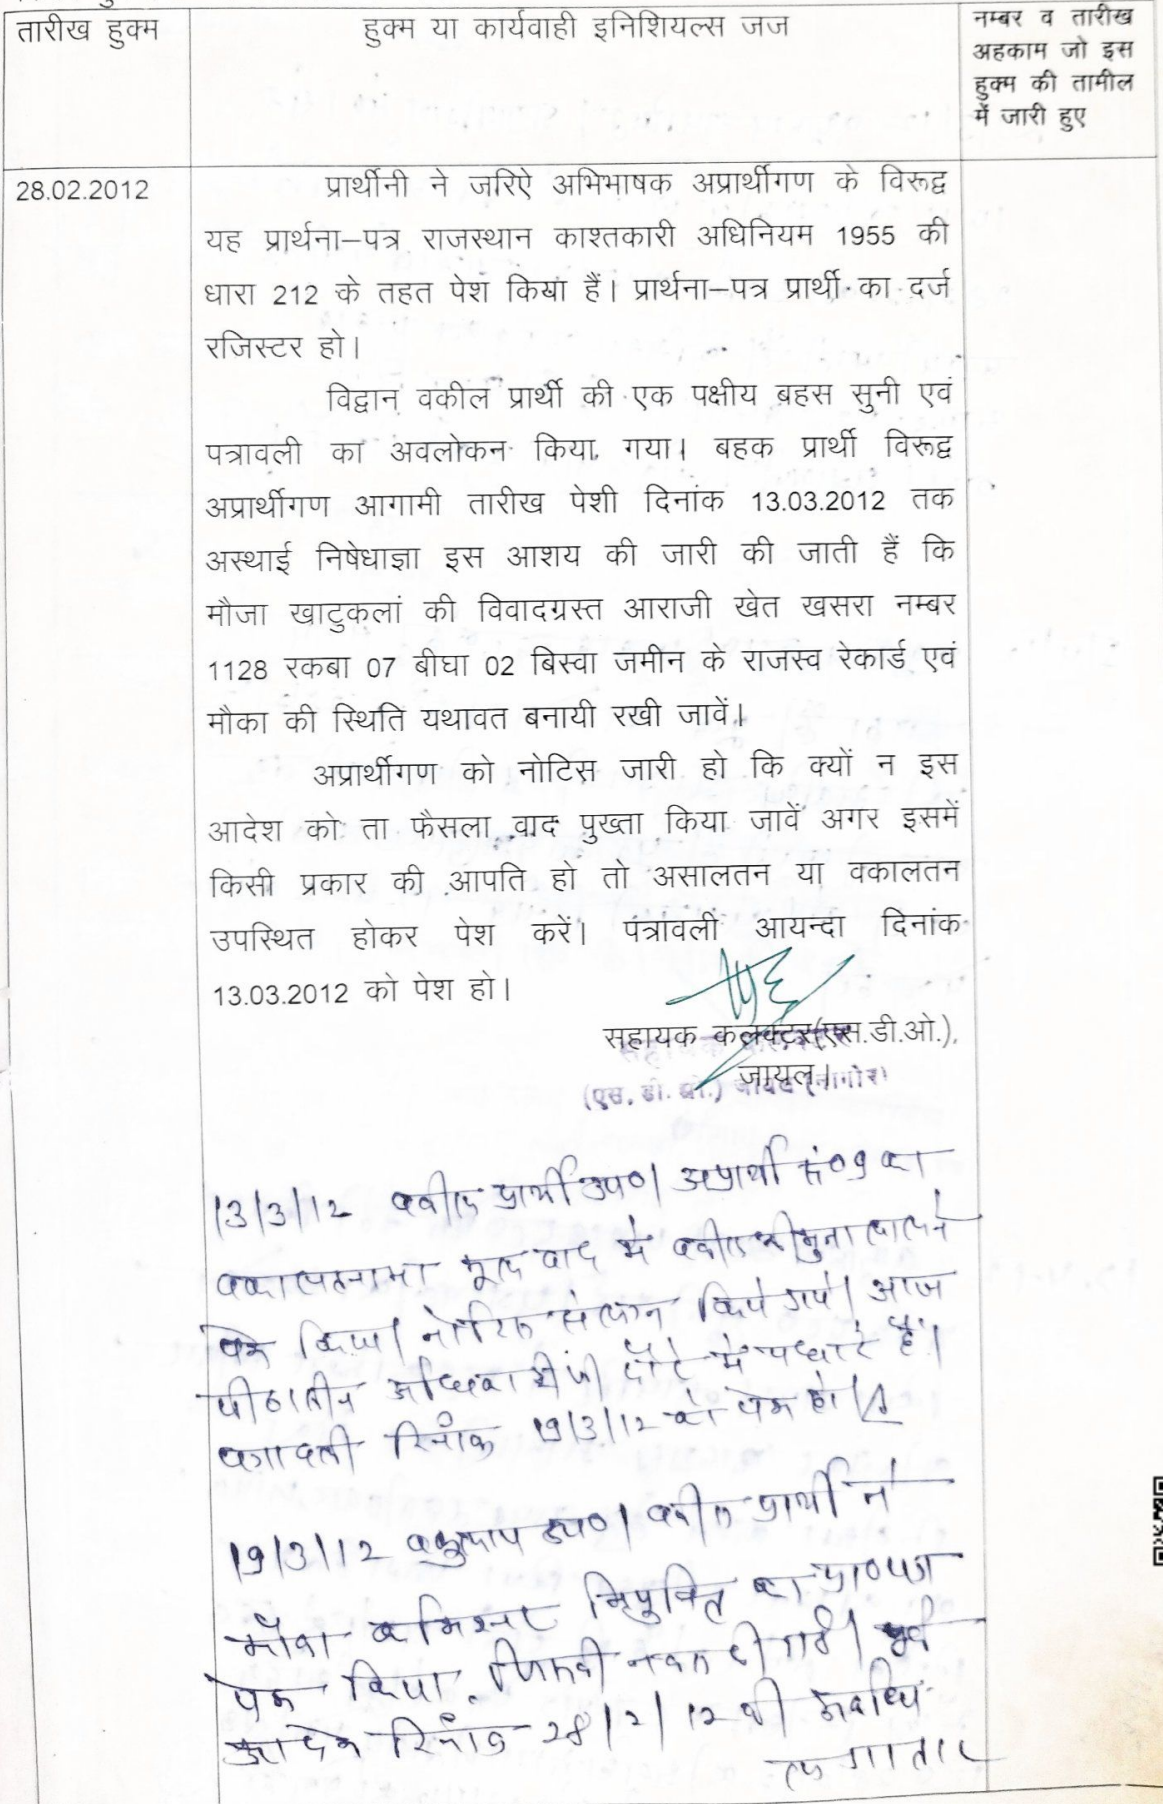 तारीख हुक्म
हुक्म या कार्यवाही इनिशियल्स जज
नम्बर व तारीख
अहकाम जो इस
हुक्म की तामील
में जारी हुए
28.02.2012
प्रार्थीनी ने जरिऐ अभिभाषक अप्रार्थीगण के विरूद्व
यह प्रार्थना–पत्र राजस्थान काश्तकारी अधिनियम 1955 की
धारा 212 के तहत पेश किया हैं। प्रार्थना–पत्र प्रार्थी का दर्ज
रजिस्टर हो।
विद्वान वकील प्रार्थी की एक पक्षीय बहस सुनी एवं
पत्रावली का अवलोकन किया गया। बहक प्रार्थी विरूद्व
अप्रार्थीगण आगामी तारीख पेशी दिनांक 13.03.2012 तक
अस्थाई निषेधाज्ञा इस आशय की जारी की जाती हैं कि
मौजा खाटुकलां की विवादग्रस्त आराजी खेत खसरा नम्बर
1128 रकबा 07 बीघा 02 बिस्वा जमीन के राजस्व रेकार्ड एवं
मौका की स्थिति यथावत बनायी रखी जावें।
अप्रार्थीगण को नोटिस जारी हो कि क्यों न इस
आदेश को ता फैसला वाद पुख्ता किया जावें अगर इसमें
किसी प्रकार की आपति हो तो असालतन या वकालतन
उपस्थित होकर पेश करें। पत्रावली आयन्दा दिनांक
13.03.2012 को पेश हो।
सहायक कलक्टर(एस.डी.ओ.),
जायल।
(एस. डी. ओ.) जायल (नागौर)
13/3/12 वकील प्रार्थी उप०। अप्रार्थी सं० 9 का
वकालतनामा मूल वाद में वकील श्री मुन्नालाल ने
पेश किया। नोटिस संलग्न किये गये। आज
पीठासीन अधिकारी जी दौरे में पधारे हैं।
पत्रावली दिनांक 19/3/12 को पेश हो।
19/3/12 वकुलाय उप०। वकील प्रार्थी ने
मौका कमिश्नर नियुक्ति का प्रा०पत्र
पेश किया, जिसकी नकल दी गई। पूर्व
आदेश दिनांक 28/2/12 की अवधि
लगातार